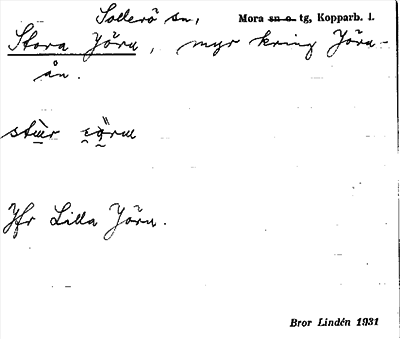 Sollerö sn, Mora sn o. tg, Kopparb. l.
Stora Jöra, myr kring Jöra-
ån.
Jfr Lilla Jöra.
Bror Lindén 1931